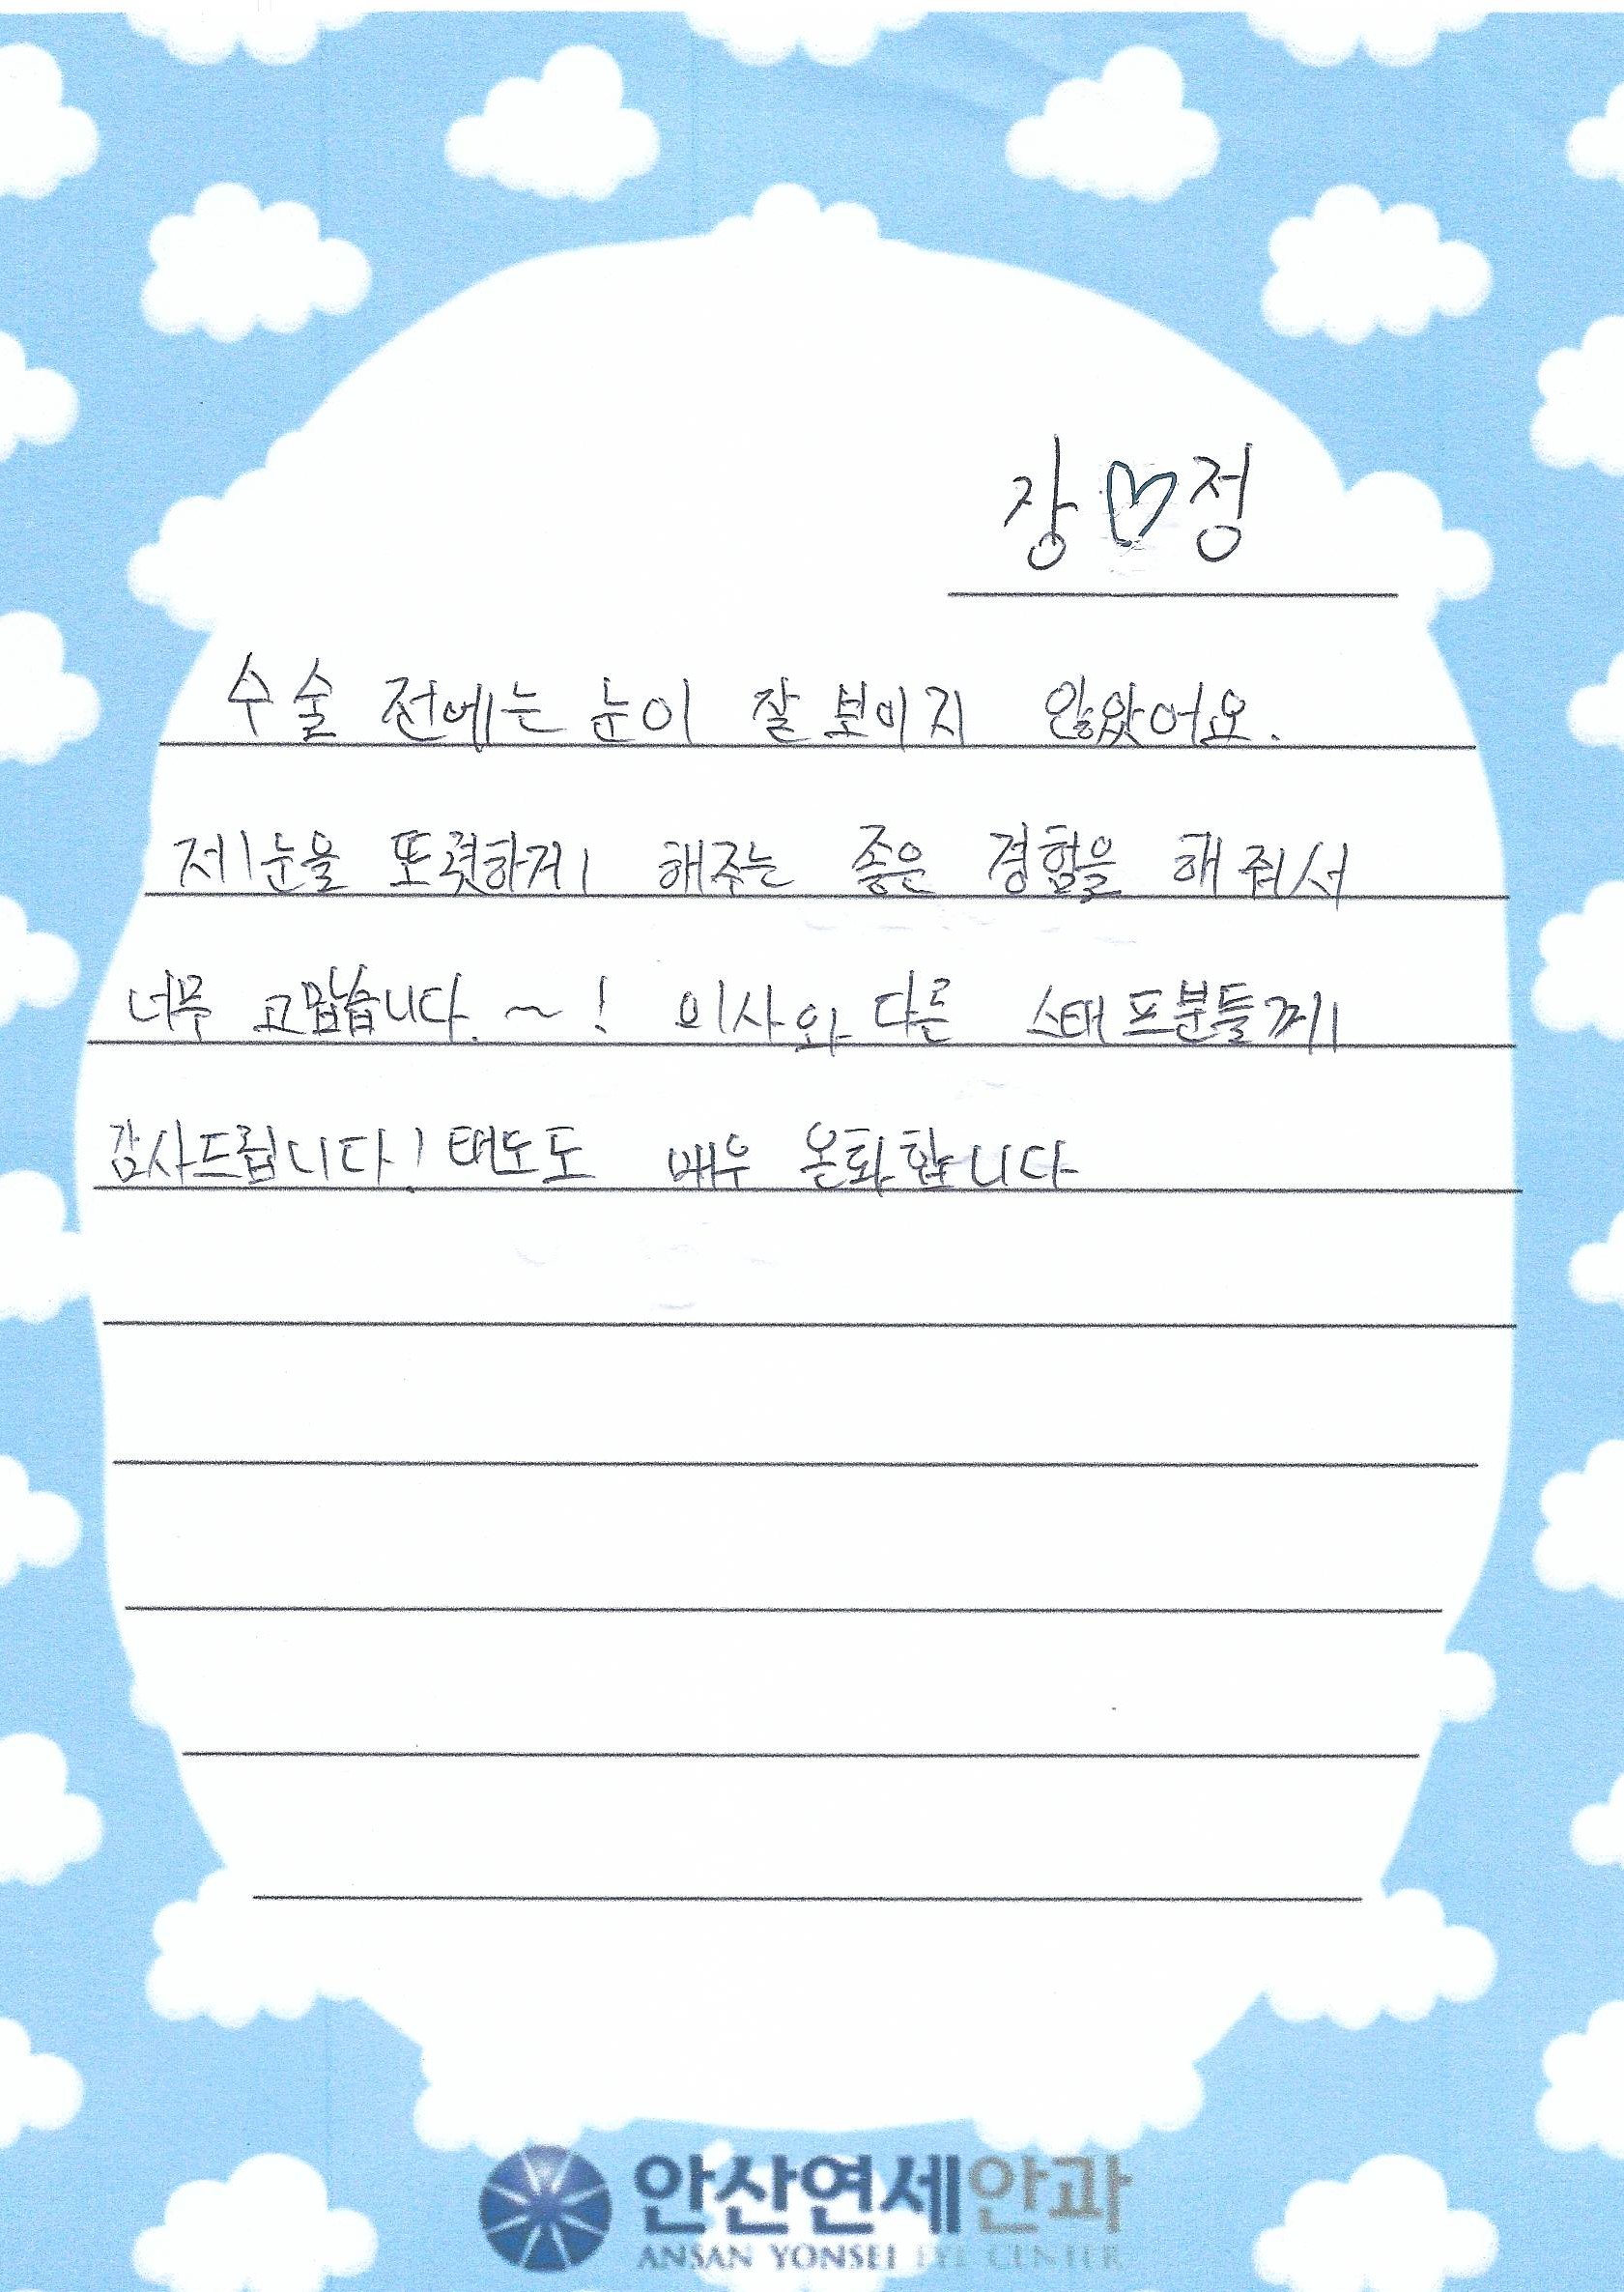 장♡정
수술 전에는 눈이 잘 보이지 않았어요.
제 눈을 또렷하게 해주는 좋은 경험을 해줘서
너무 고맙습니다.~! 의사와 다른 스태프분들께
감사드립니다! 태도도 매우 온화합니다
안산연세안과
ANSAN YONSEI EYE CENTER